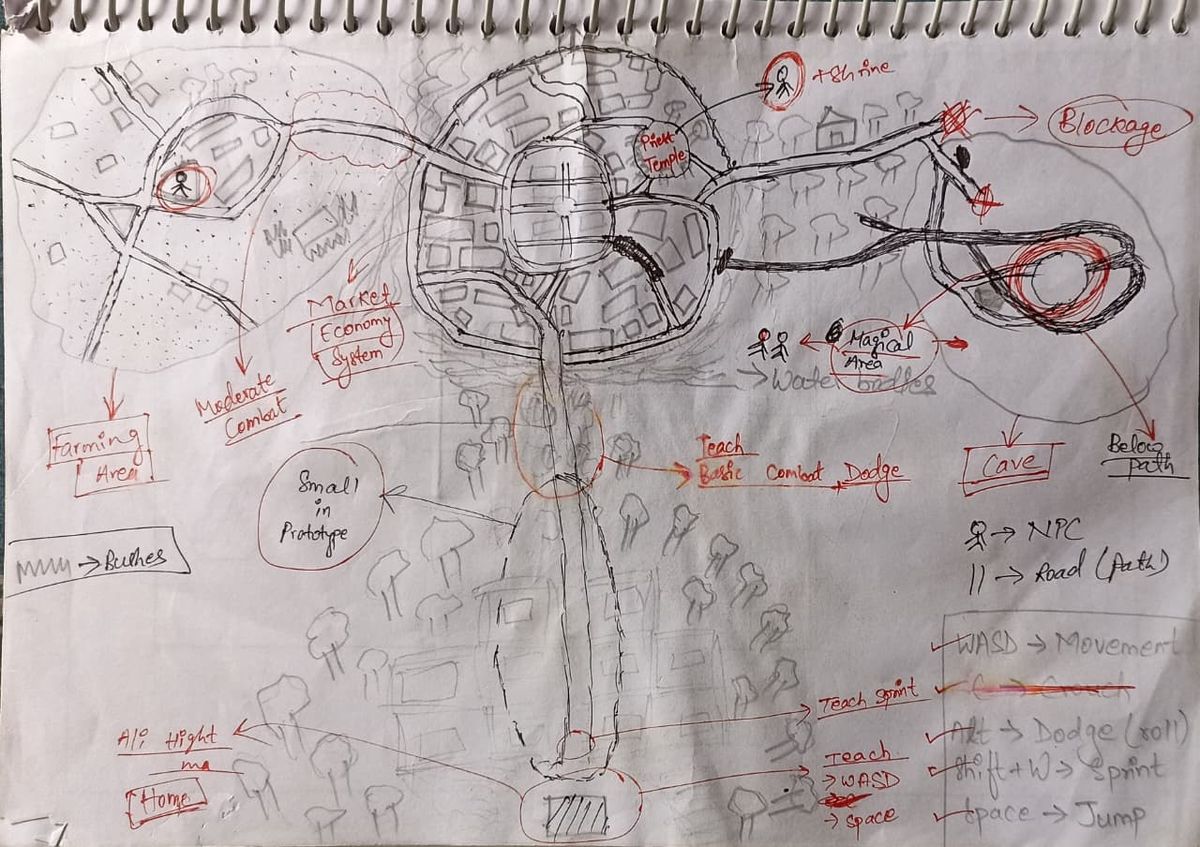 +Shrine
Blockage
Priest
Temple
Market
Economy
System
Magical
Area
Moderate
Combat
Farming
Area
Teach
Basic Combat Dodge
Cave
Below
path
Small
in
Prototype
→ NPC
→ Road (Path)
→ Bushes
WASD → Movement
Alt → Dodge (roll)
Shift + W → Sprint
Space → Jump
Teach Sprint
Teach
→ WASD
→ Space
Home